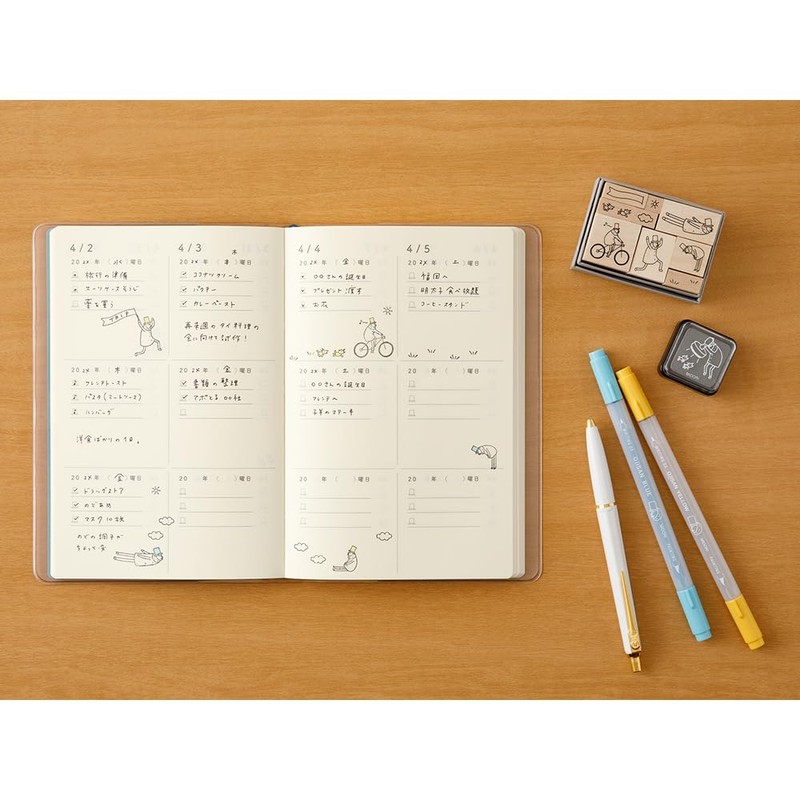 4/2
202X 年 （水）曜日
旅行の準備
スーツケースそうじ
薬を買う
TRIP
4/3
202X 年 （木）曜日
ココナツクリーム
パクチー
カレーペースト
再来週のタイ料理の
会に向けて試作！
4/4
202X 年 （金）曜日
○○さんの誕生日
プレゼント渡す
お花
4/5
202X 年 （土）曜日
福岡へ
明太子食べ放題
コーヒースタンド
202X 年 （木）曜日
フレンチトースト
パスタ（ミートソース）
ハンバーグ
洋食ばかりの1日。
202X 年 （金）曜日
書類の整理
アポとる ○○社
202X 年 （土）曜日
○○さんの誕生日
フレンチへ
20 年 （ ）曜日
202X 年 （金）曜日
ドラッグストア
のどあめ
マスク 10枚
のどの調子が
ちょっと変
20 年 （ ）曜日
20 年 （ ）曜日
20 年 （ ）曜日